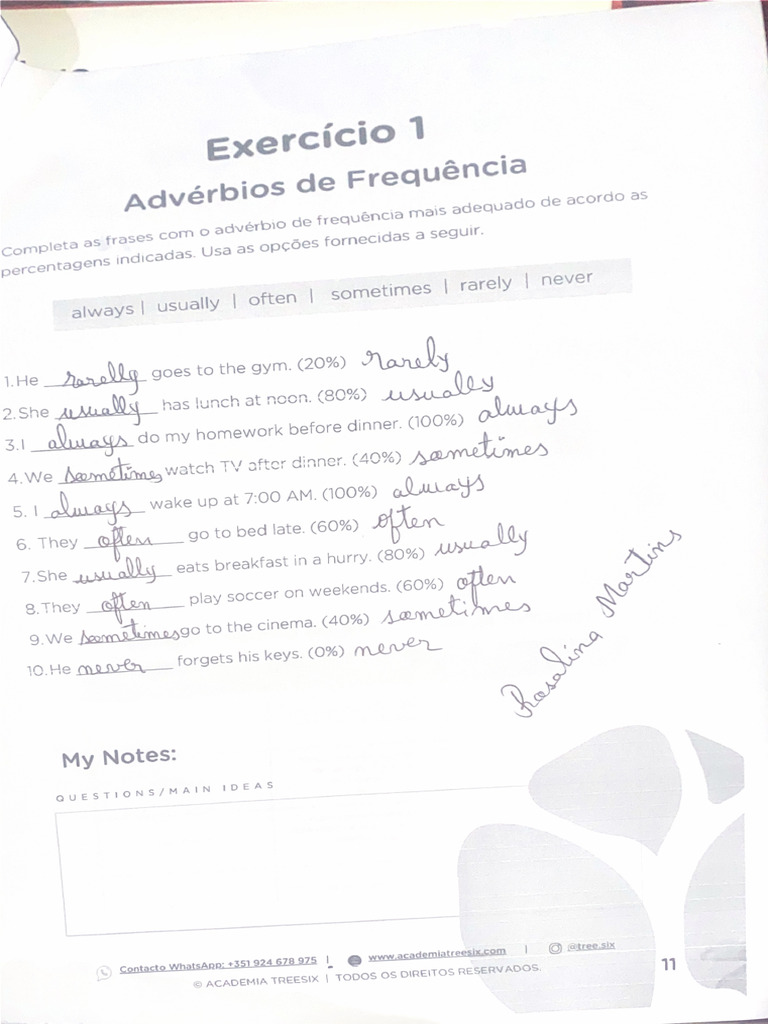 Exercício 1
Advérbios de Frequência
Completa as frases com o advérbio de frequência mais adequado de acordo as
percentagens indicadas. Usa as opções fornecidas a seguir.
always | usually | often | sometimes | rarely | never
1. He rarelly goes to the gym. (20%) rarely
2. She usually has lunch at noon. (80%) usually
3. I always do my homework before dinner. (100%) always
4. We sometimes watch TV after dinner. (40%) sometimes
5. I always wake up at 7:00 AM. (100%) always
6. They often go to bed late. (60%) often
7. She usually eats breakfast in a hurry. (80%) usually
8. They often play soccer on weekends. (60%) often
9. We sometimes go to the cinema. (40%) sometimes
10. He never forgets his keys. (0%) never
Rosalina Martins
My Notes:
QUESTIONS/MAIN IDEAS
Contacto WhatsApp: +351 924 678 975 | www.academiatreesix.com | @tree.six
© ACADEMIA TREESIX | TODOS OS DIREITOS RESERVADOS.
11